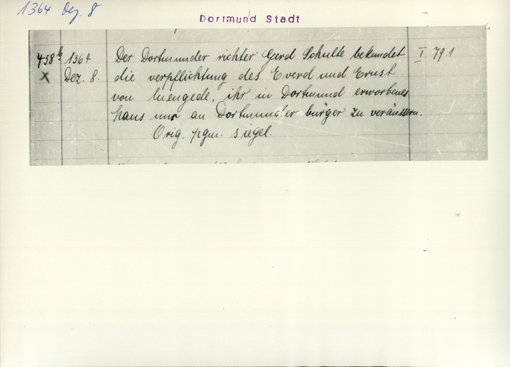 1364 Dez. 8
Dortmund Stadt
458b 1364 Der Dortmunder richter Gerd Schulte bekundet I 791
X Dez. 8. die verpflichtung des Everd und Ernst
von Mengede, ihr in Dortmund erworbenes
haus nur an Dortmunder bürger zu veräussern.
Orig. pgm. Siegel.